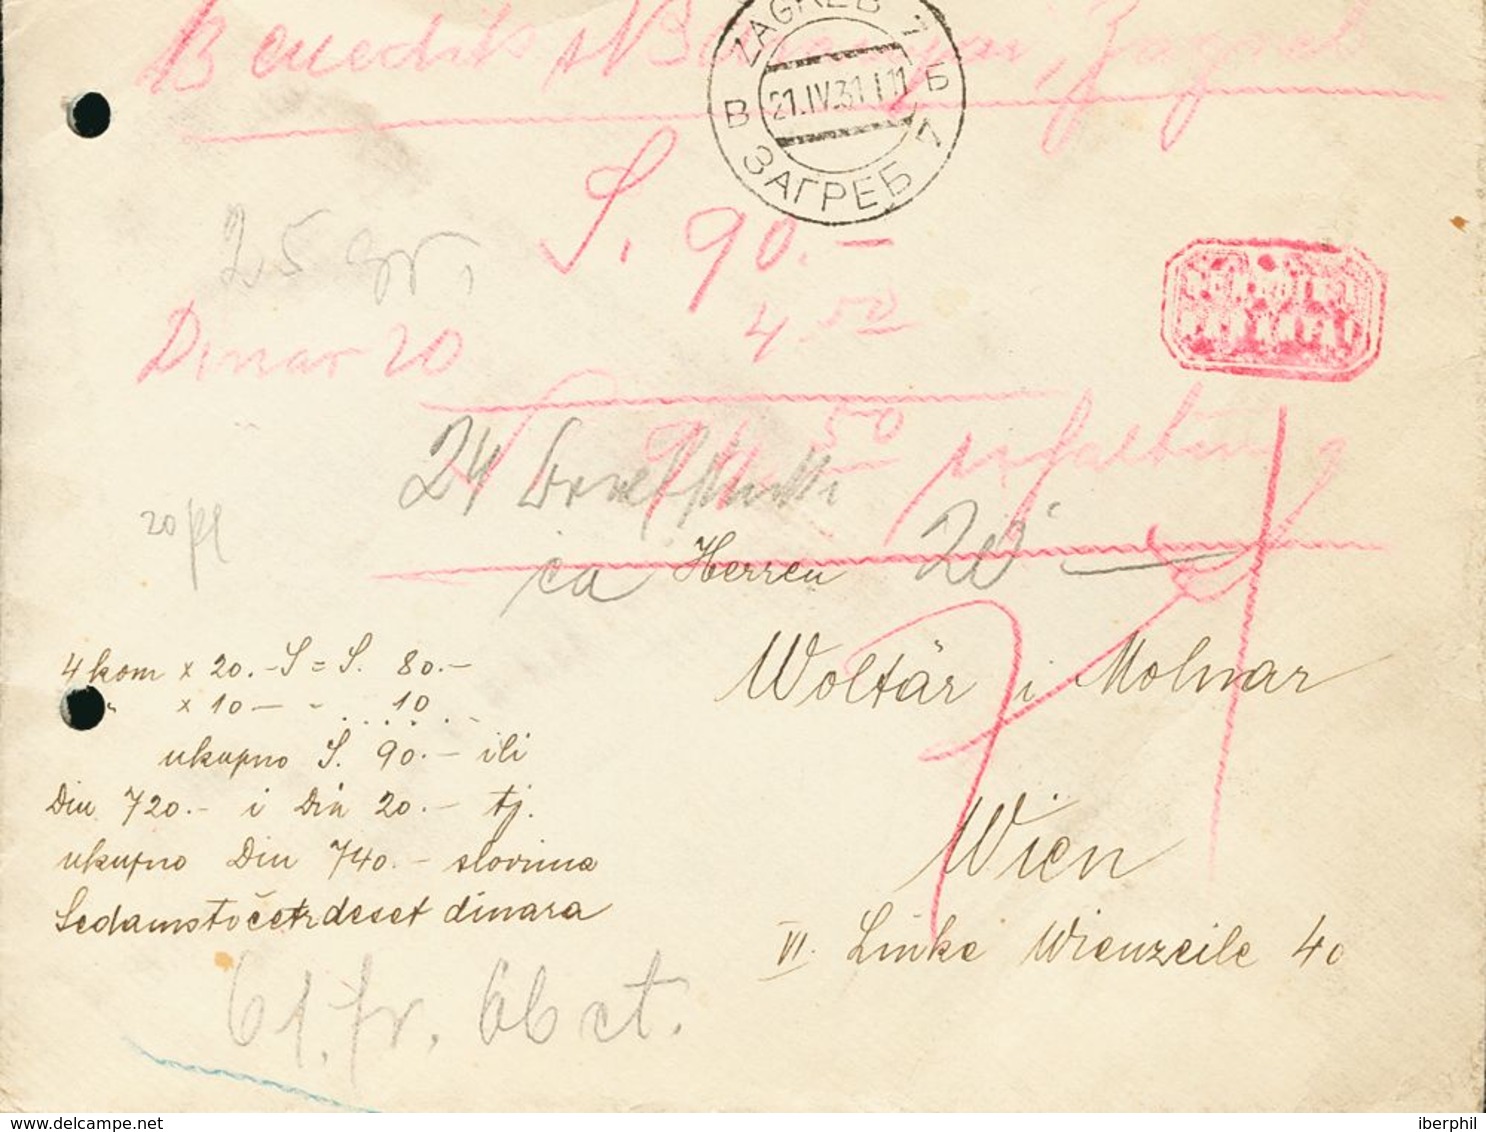 Benedikt & Baranyai, Zagreb
ZAGREB 7
В 21.IV.31 11 Б
ЗАГРЕБ 7
S. 90.-
25 gr.
BENEDIKT
BARANYAI
Dinar 20
4 50
50
24
ca Herren
20 pf
4 kom x 20.- S = S. 80.-
" x 10 — - ... 10.-
Woltär i Molnar
ukupno S. 90.- ili
Din 720.- i Din 20.- tj.
Wien
ukupno Din 740.- slovima
Sedamstočetrdeset dinara
VI. Linke Wienzeile 40
61. fr. 66 ct.
delcampe.net
iberphil